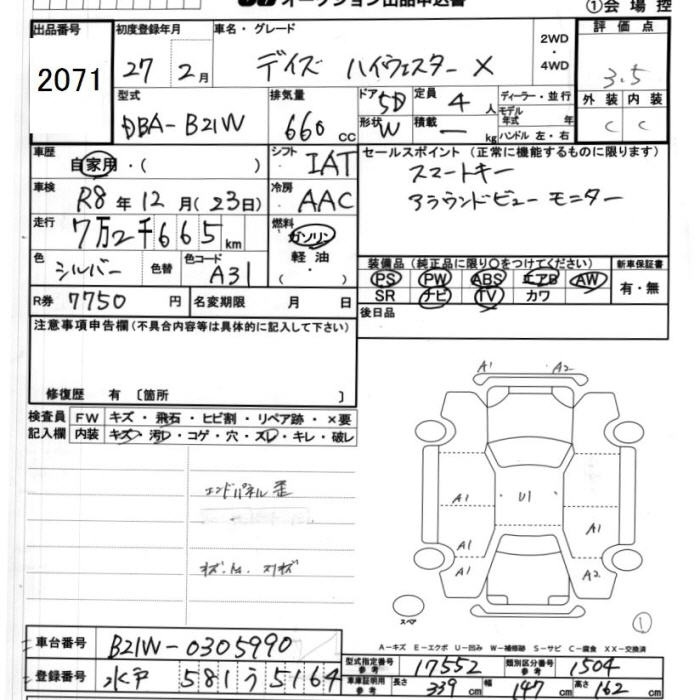 オークション出品申込書
①会場控
出品番号 2071
初度登録年月 27年 2月
車名・グレード デイズ ハイウェスター X
2WD・4WD
評価点 3.5
外装 内装
C C
型式 DBA-B21W
排気量 660 cc
ドア 5D
形状 W
定員 4 人
積載 ― kg
ディーラー・並行
モデル年式 年
ハンドル 左・右
車歴 自家用・( )
シフト IAT
冷房 AAC
セールスポイント (正常に機能するものに限ります)
スマートキー
アラウンドビューモニター
車検 R8年 12月(23日)
走行 7万2千665 km
燃料 ガソリン
軽油
( )
色 シルバー 色替 色コード A31
R券 7750 円 名変期限 月 日
装備品 (純正品に限り〇をつけてください)
PS PW ABS エアB AW
SR ナビ TV カワ
新車保証書
有・無
後日品
注意事項申告欄(不具合内容等は具体的に記入して下さい)
修復歴 有 〔箇所 〕
検査員記入欄
FW キズ・飛石・ヒビ割・リペア跡・×要
内装 キズ・汚レ・コゲ・穴・スレ・キレ・破レ
エンドパネル歪
A1 A2
A1 U1 A1
A1
A1 A2
スペア
①
A-キズ E-エクボ U-凹み W-補修跡 S-サビ C-腐食 XX-交換済
車台番号 B21W-0305990
登録番号 水戸 581 う 5164
型式指定番号 参考 17552 類別区分番号 参考 1504
車庫証明用 参考 長さ 339 cm 幅 147 cm 高さ 162 cm